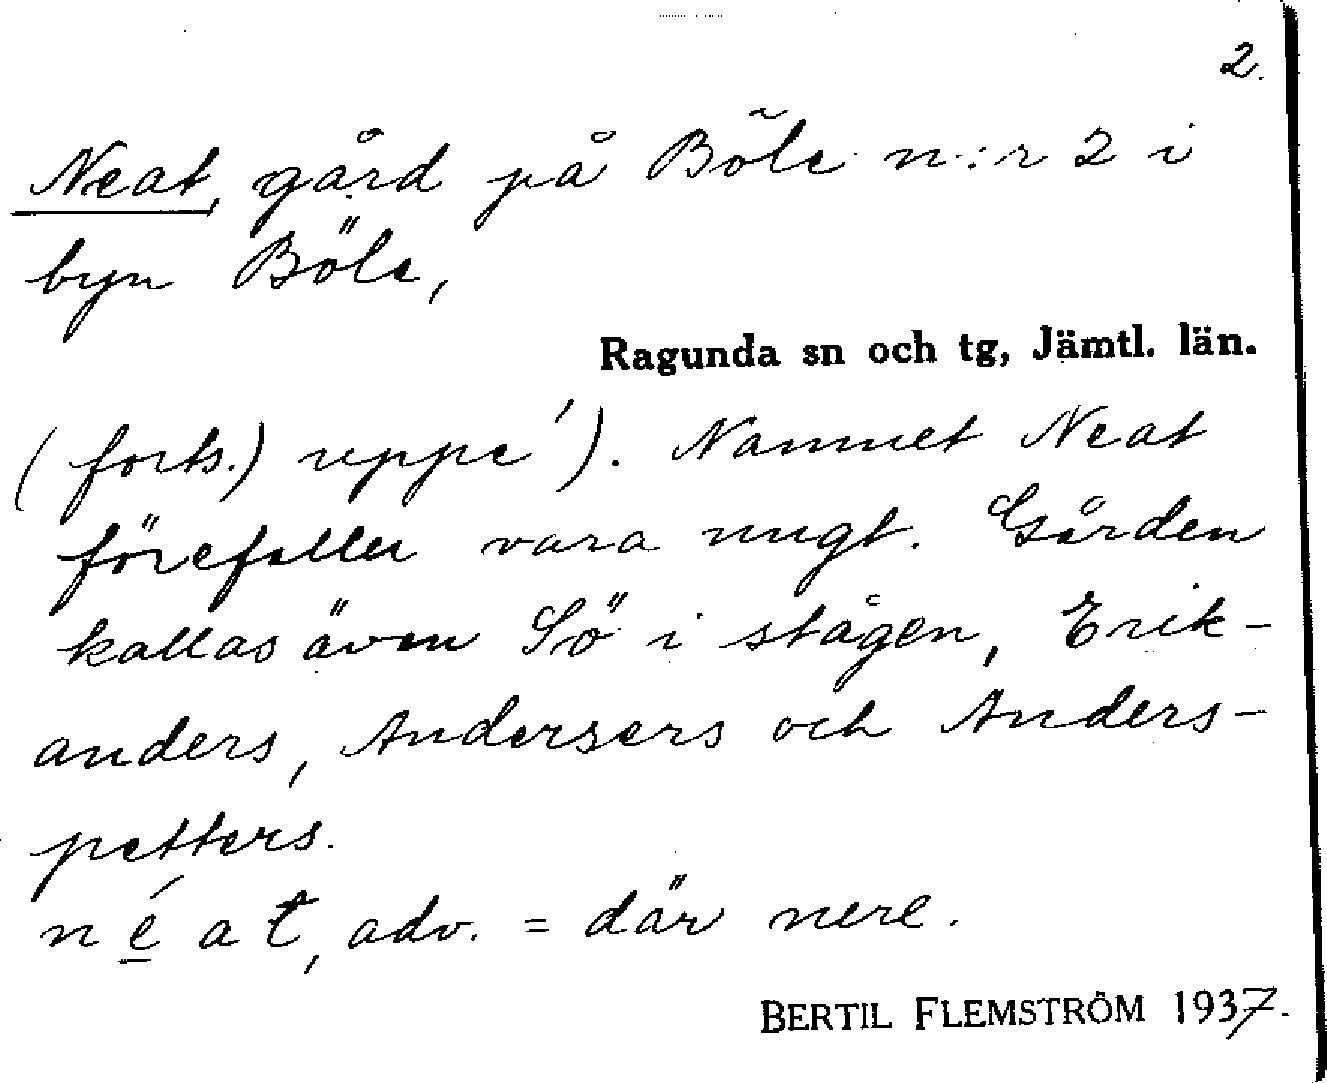 2.
Neat, gård på Böle n:r 2 i
byn Böle,
Ragunda sn och tg, Jämtl. län.
(forts.) uppe'). Namnet Neat
förefaller vara ungt. Gården
kallas även Sö i stågen, Erik-
anders, Andersers och Anders-
petters.
néat, adv. = där nere.
BERTIL FLEMSTRÖM 1937.